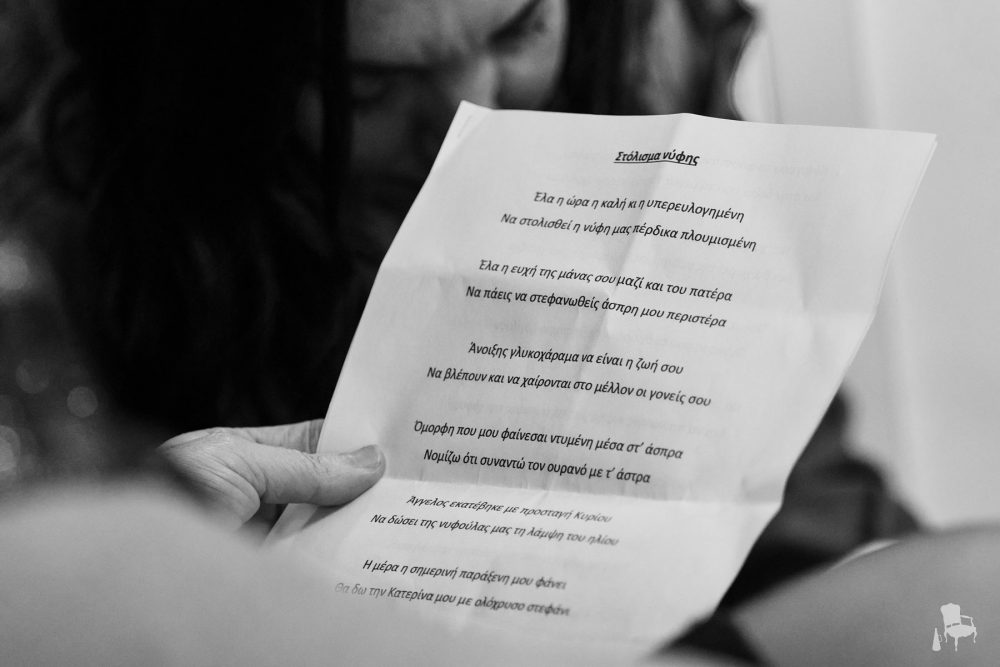 Στόλισμα νύφης
Έλα η ώρα η καλή κι η υπερευλογημένη
Να στολισθεί η νύφη μας πέρδικα πλουμισμένη
Έλα η ευχή της μάνας σου μαζί και του πατέρα
Να πάεις να στεφανωθείς άσπρη μου περιστέρα
Άνοιξης γλυκοχάραμα να είναι η ζωή σου
Να βλέπουν και να χαίρονται στο μέλλον οι γονείς σου
Όμορφη που μου φαίνεσαι ντυμένη μέσα στ' άσπρα
Νομίζω ότι συναντώ τον ουρανό με τ' άστρα
Άγγελος εκατέβηκε με προσταγή Κυρίου
Να δώσει της νυφούλας μας τη λάμψη του ηλίου
Η μέρα η σημερινή παράξενη μου φάνει
Θα δω την Κατερίνα μου με ολόχρυσο στεφάνι